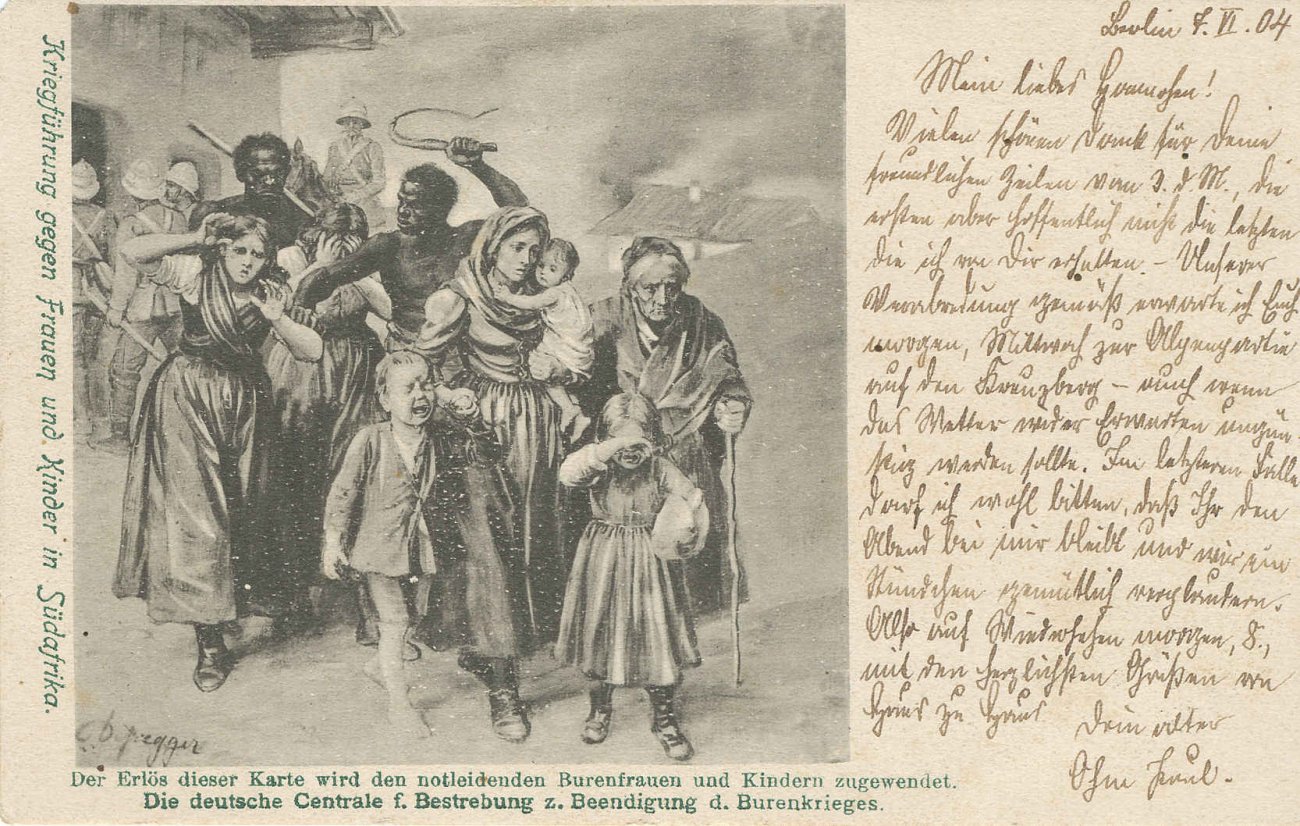 Kriegführung gegen Frauen und Kinder in Südafrika.
Berlin 7. VI. 04
Mein liebes
Vielen schönen Dank für Deine
freundlichen Zeilen vom 3. d. M., die
ersten aber hoffentlich nicht die letzten
die ich von Dir erhalten. – Unserer
Verabredung gemäß erwarte ich Euch
morgen, Mittwoch zur
auf den Kreuzberg – auch wenn
das Wetter wider Erwarten ungün-
stig werden sollte. Im letzteren Falle
darf ich wohl bitten, daß Ihr den
Abend bei mir bleibt und wir ein
Stündchen gemütlich verplaudern.
Also auf Wiedersehen morgen, 8.,
mit den herzlichsten Grüßen von
Haus zu Haus
Dein alter
Ohm Paul.
Der Erlös dieser Karte wird den notleidenden Burenfrauen und Kindern zugewendet.
Die deutsche Centrale f. Bestrebung z. Beendigung d. Burenkrieges.